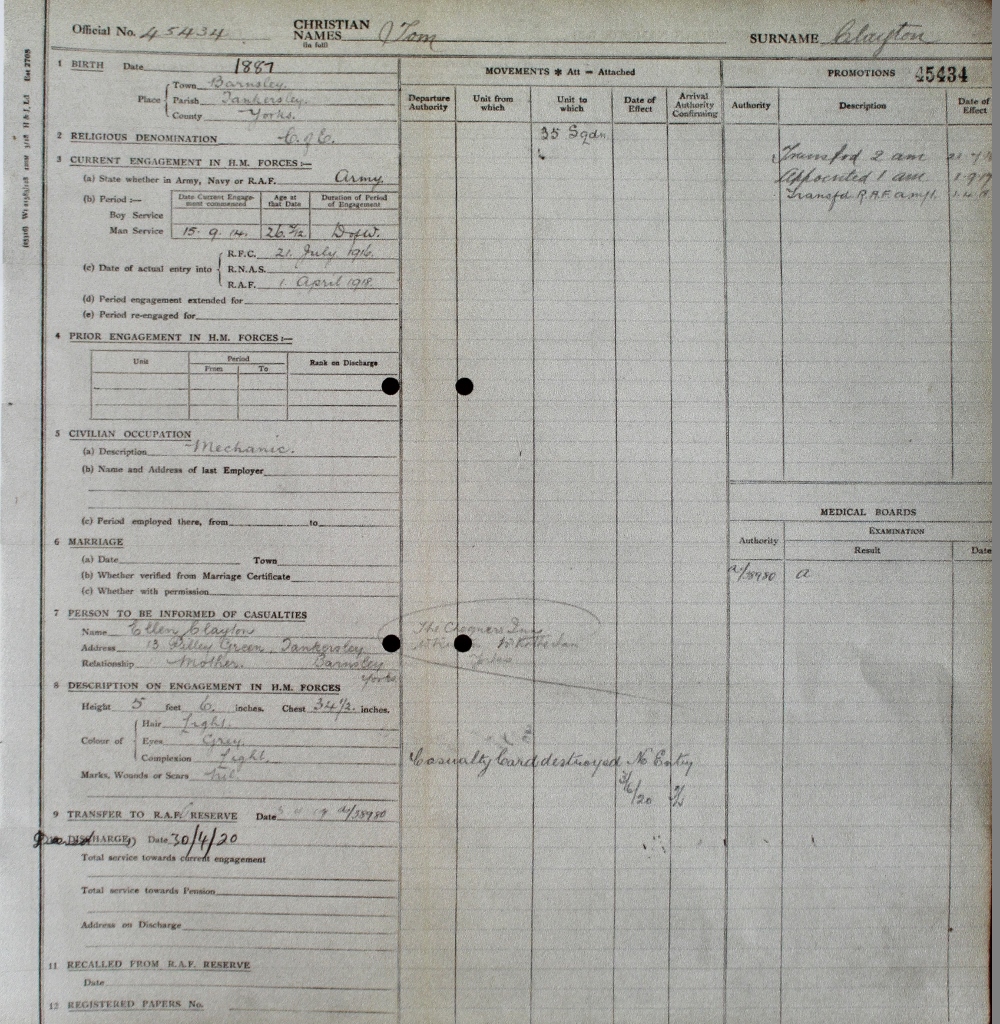 Official No. 45434 CHRISTIAN NAMES (in full) Tom SURNAME Clayton
1 BIRTH Date 1887
Place Town Barnsley.
Parish Tankersley.
County Yorks.
2 RELIGIOUS DENOMINATION C. of E.
3 CURRENT ENGAGEMENT IN H.M. FORCES :—
(a) State whether in Army, Navy or R.A.F. Army.
(b) Period :— Date Current Engagement commenced Age at that Date Duration of Period of Engagement
Boy Service
Man Service 15. 9. 14. D of W.
(c) Date of actual entry into R.F.C. 21. July 1916.
R.N.A.S.
R.A.F. 1. April 1918.
(d) Period engagement extended for
(e) Period re-engaged for
4 PRIOR ENGAGEMENT IN H.M. FORCES :—
Unit Period Rank on Discharge
From To
5 CIVILIAN OCCUPATION
(a) Description Mechanic.
(b) Name and Address of last Employer
(c) Period employed there, from to
6 MARRIAGE
(a) Date Town
(b) Whether verified from Marriage Certificate
(c) Whether with permission
7 PERSON TO BE INFORMED OF CASUALTIES
Name Ellen Clayton
Address 13 Pilley Green, Tankersley
Relationship Mother. Barnsley
Yorks.
8 DESCRIPTION ON ENGAGEMENT IN H.M. FORCES
Height 5 feet 6. inches. Chest 34½. inches.
Colour of Hair Light.
Eyes Grey.
Complexion Light
Marks, Wounds or Scars Nil
9 TRANSFER TO R.A.F. RESERVE Date 19 a/38980
DISCHARGE, Date 30/4/20
Total service towards current engagement
Total service towards Pension
Address on Discharge
11 RECALLED FROM R.A.F. RESERVE
Date
12 REGISTERED PAPERS No.
MOVEMENTS * Att = Attached
Departure Authority Unit from which Unit to which Date of Effect Arrival Authority Confirming
35 Sqdn
The Inn
Casualty Card destroyed No Entry
/20
PROMOTIONS 45434
Authority Description Date of Effect
Transfd 2 am
Appointed 1 am 1.9.17
Transfd R.A.F. 1.4.18
MEDICAL BOARDS
Authority EXAMINATION
Result Date
a/38980 a